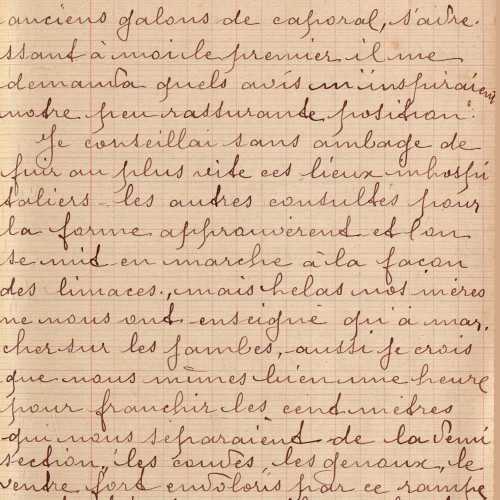 anciens galons de caporal, s'adre-
ssant à moi le premier il me
demanda quels avis m'inspiraient
notre peu rassurante position.
Je conseillai sans ambage de
fuir au plus vite ces lieux inhospi
taliers les autres consultés pour
la forme approuvèrent et l'on
se mit en marche à la façon
des limaces, mais helas nos mères
ne nous ont enseigné qu'à mar-
cher sur les jambes, aussi je crois
que nous mîmes bien une heure
pour franchir les cent mètres
qui nous séparaient de la demi
section, les coudes, les genoux, le
ventre fort endoloris par ce rampe